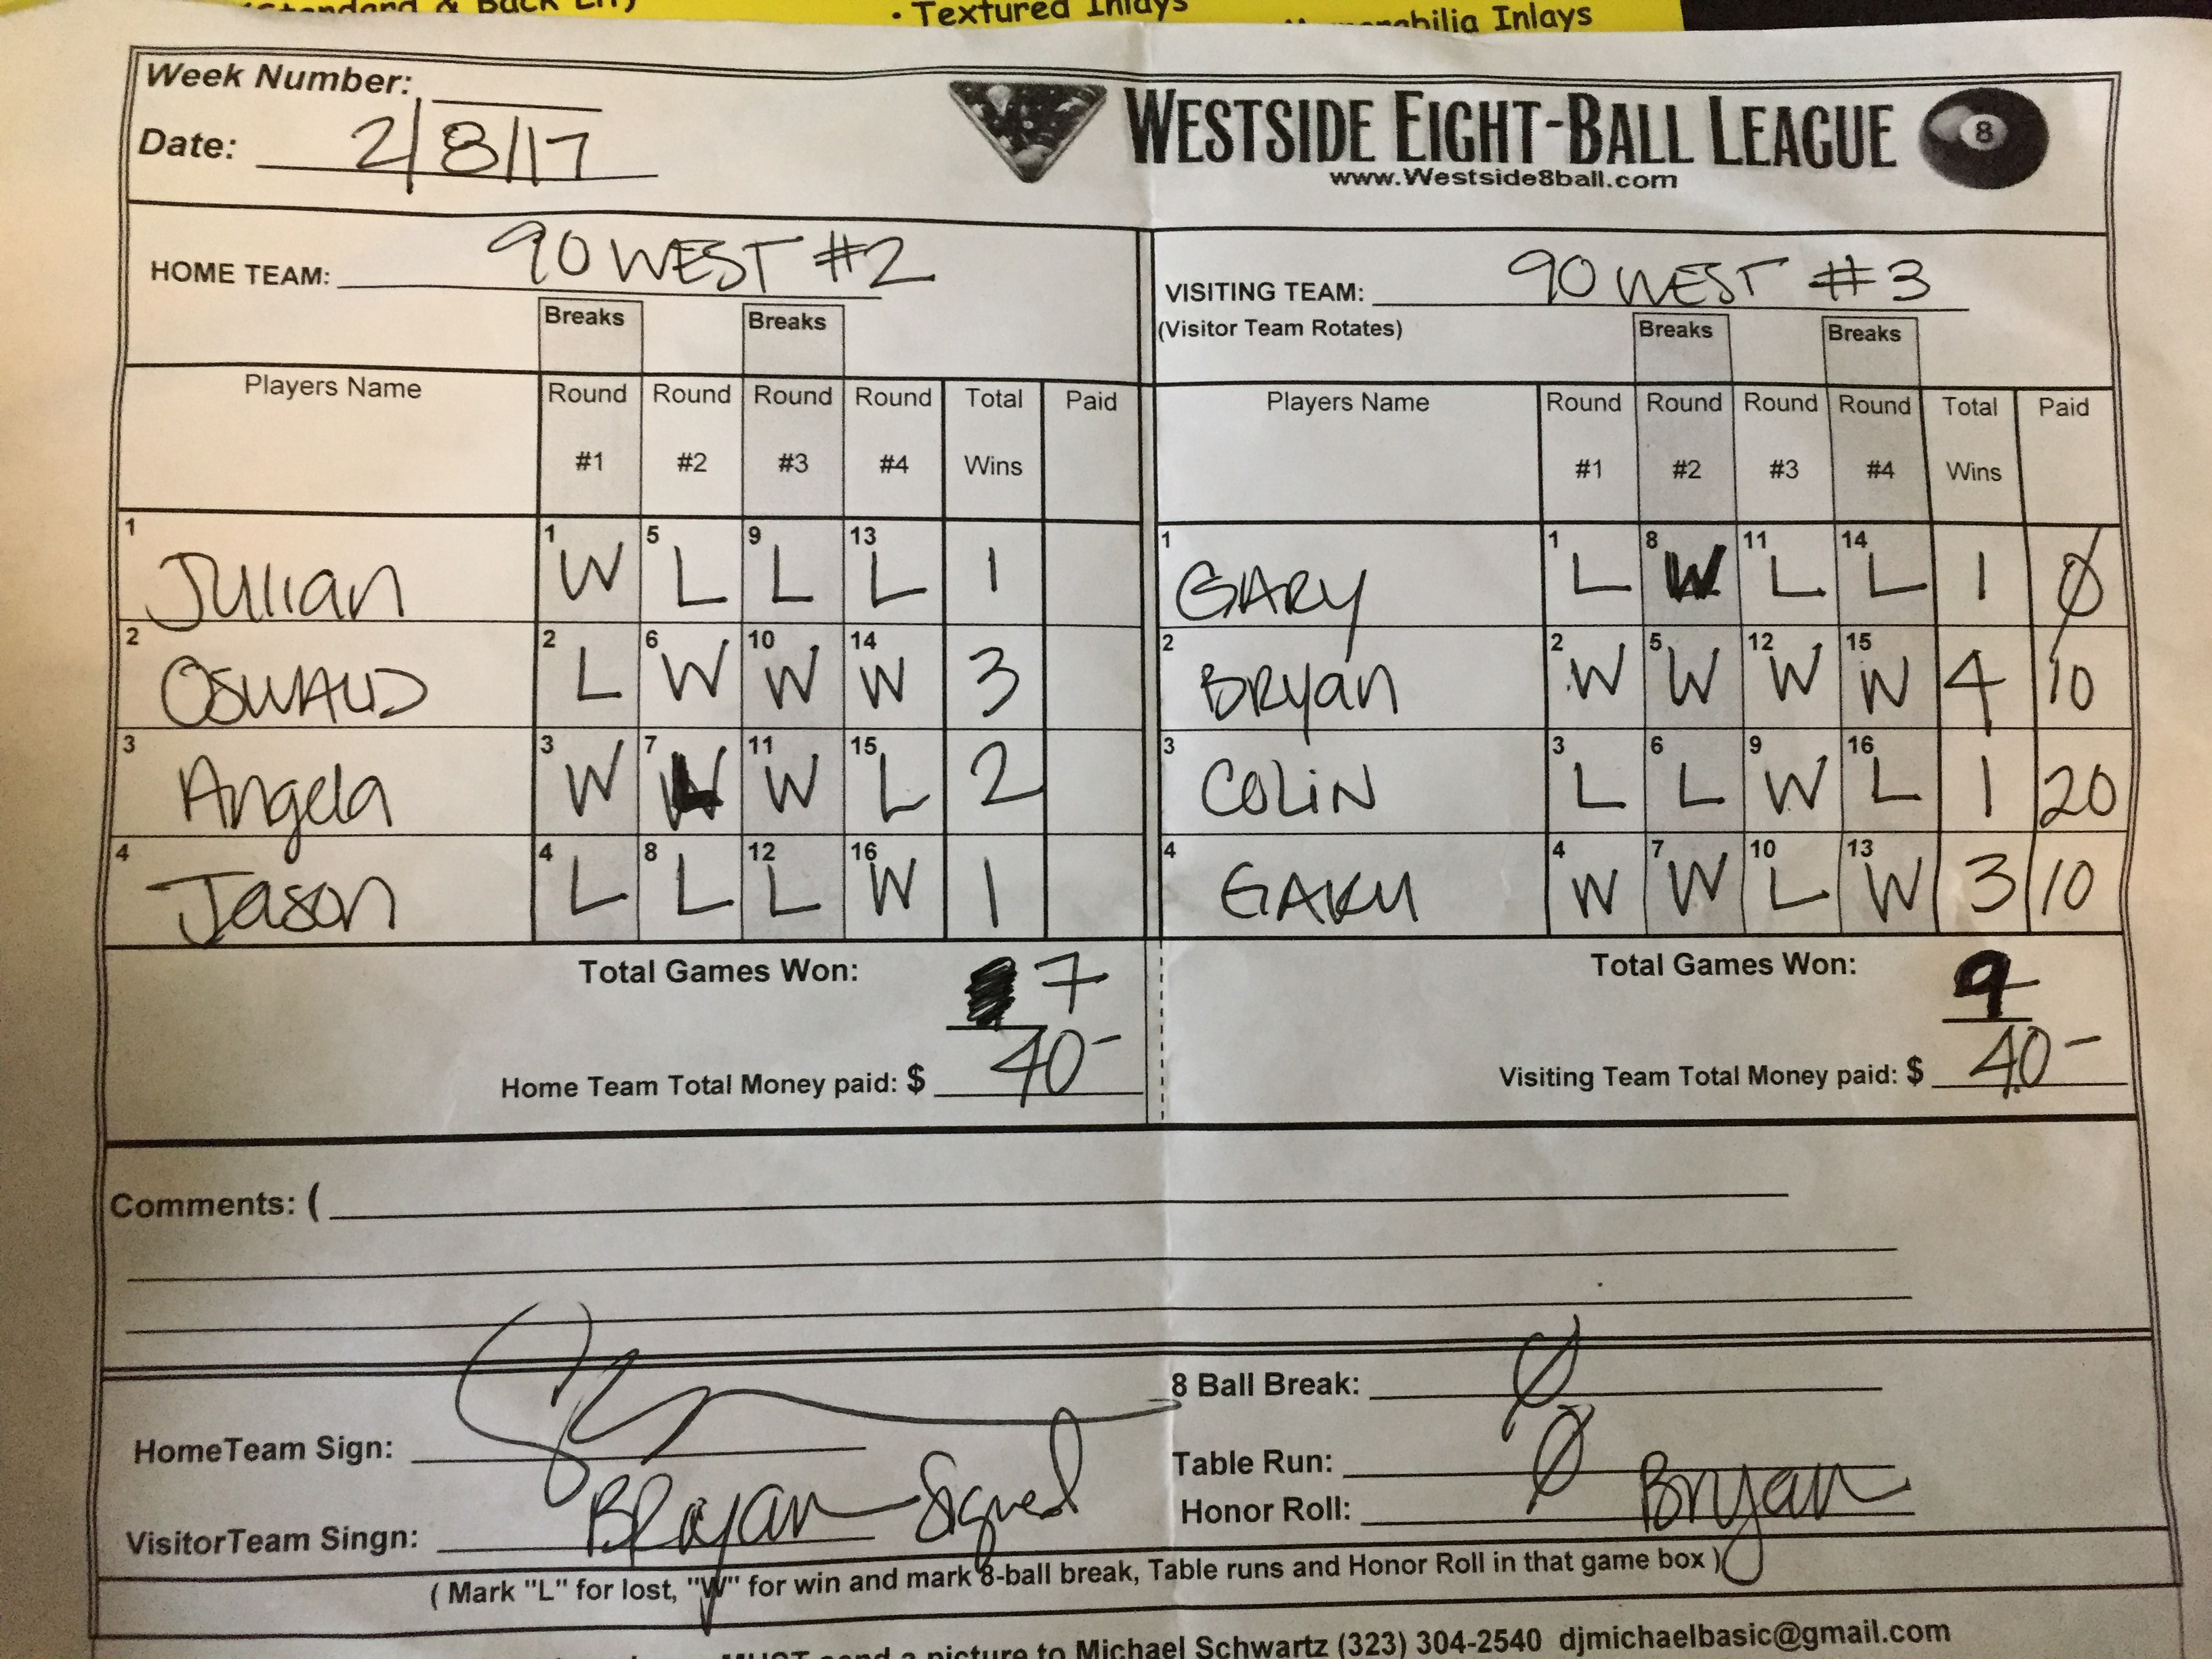 • Textured Inlays
Inlays
Week Number:
Date: 2/8/17
WESTSIDE EIGHT-BALL LEAGUE 8
www.Westside8ball.com
HOME TEAM: 90 WEST #2
VISITING TEAM: 90 WEST #3
(Visitor Team Rotates)
Breaks Breaks Breaks Breaks
Players Name Round #1 Round #2 Round #3 Round #4 Total Wins Paid
Players Name Round #1 Round #2 Round #3 Round #4 Total Wins Paid
1 Julian 1 W 5 L 9 L 13 L 1
1 GARY 1 L 8 W 11 L 14 L 1 0
2 OSWALD 2 L 6 W 10 W 14 W 3
2 BRyan 2 W 5 W 12 W 15 W 4 10
3 Angela 3 W 7 L 11 W 15 L 2
3 COLiN 3 L 6 L 9 W 16 L 1 20
4 Jason 4 L 8 L 12 L 16 W 1
4 GAKU 4 W 7 W 10 L 13 W 3 10
Total Games Won: 7
Total Games Won: 9
Home Team Total Money paid: $ 40-
Visiting Team Total Money paid: $ 40-
Comments: (
8 Ball Break: 0
HomeTeam Sign:
Table Run: 0
Honor Roll: Bryan
VisitorTeam Singn: BRyan Signed
( Mark "L" for lost, "W" for win and mark 8-ball break, Table runs and Honor Roll in that game box )
MUST send a picture to Michael Schwartz (323) 304-2540 djmichaelbasic@gmail.com